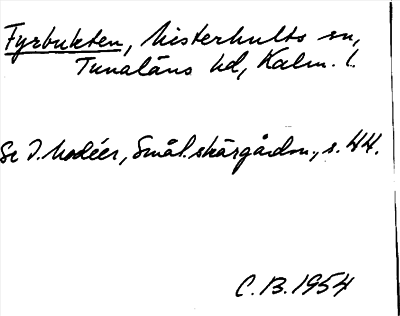 Fyrbukten, Misterhults sn,
Tunaläns hd, Kalm. l.
Se I. Modéer, Smål. skärgårdsn., s. 44.
C.B. 1954